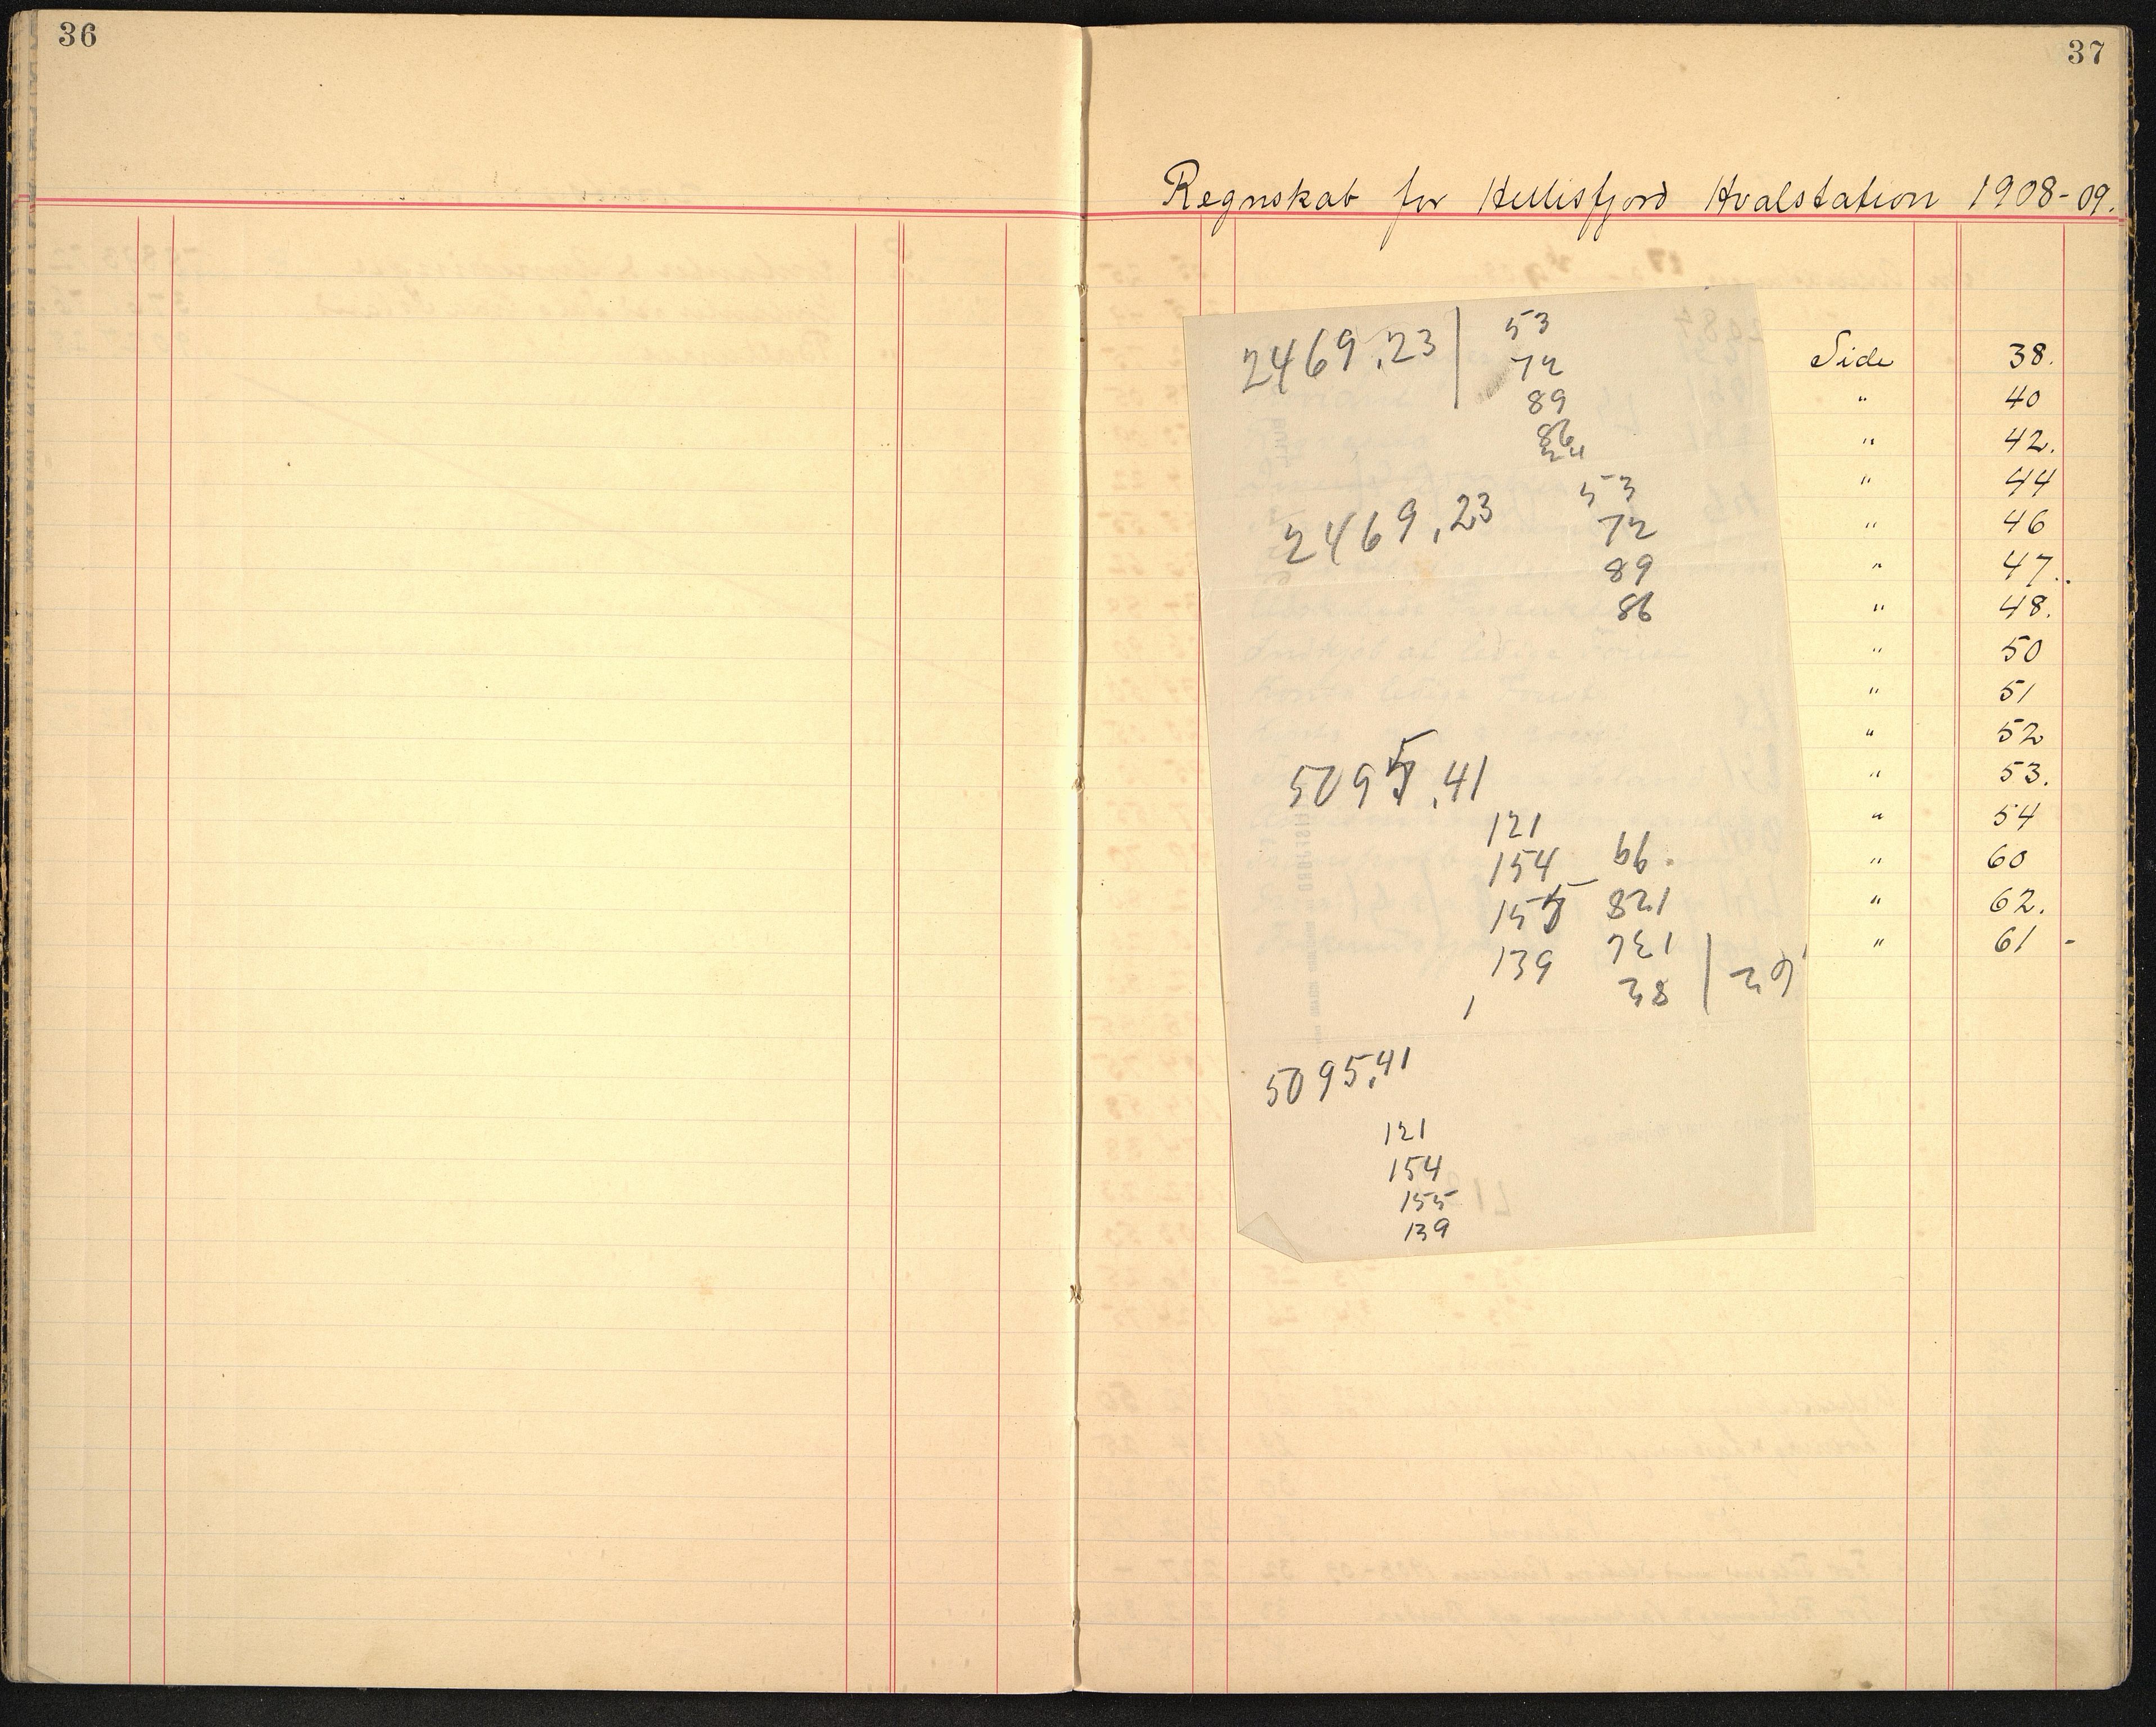 36
37
Regnskab for Hellisfjord Hvalstation 1908-09.
2469,23 | 53
72
89
86
24
2469,23 53
72
89
86
5095,41
121
154 99.
155 128
139 137
82 | 62
5095,41
121
154
155
139
Side 38.
" 40
" 42.
" 44
" 46
" 47.
" 48.
" 50
" 51
" 52
" 53.
" 54
" 60
" 62.
" 61 -